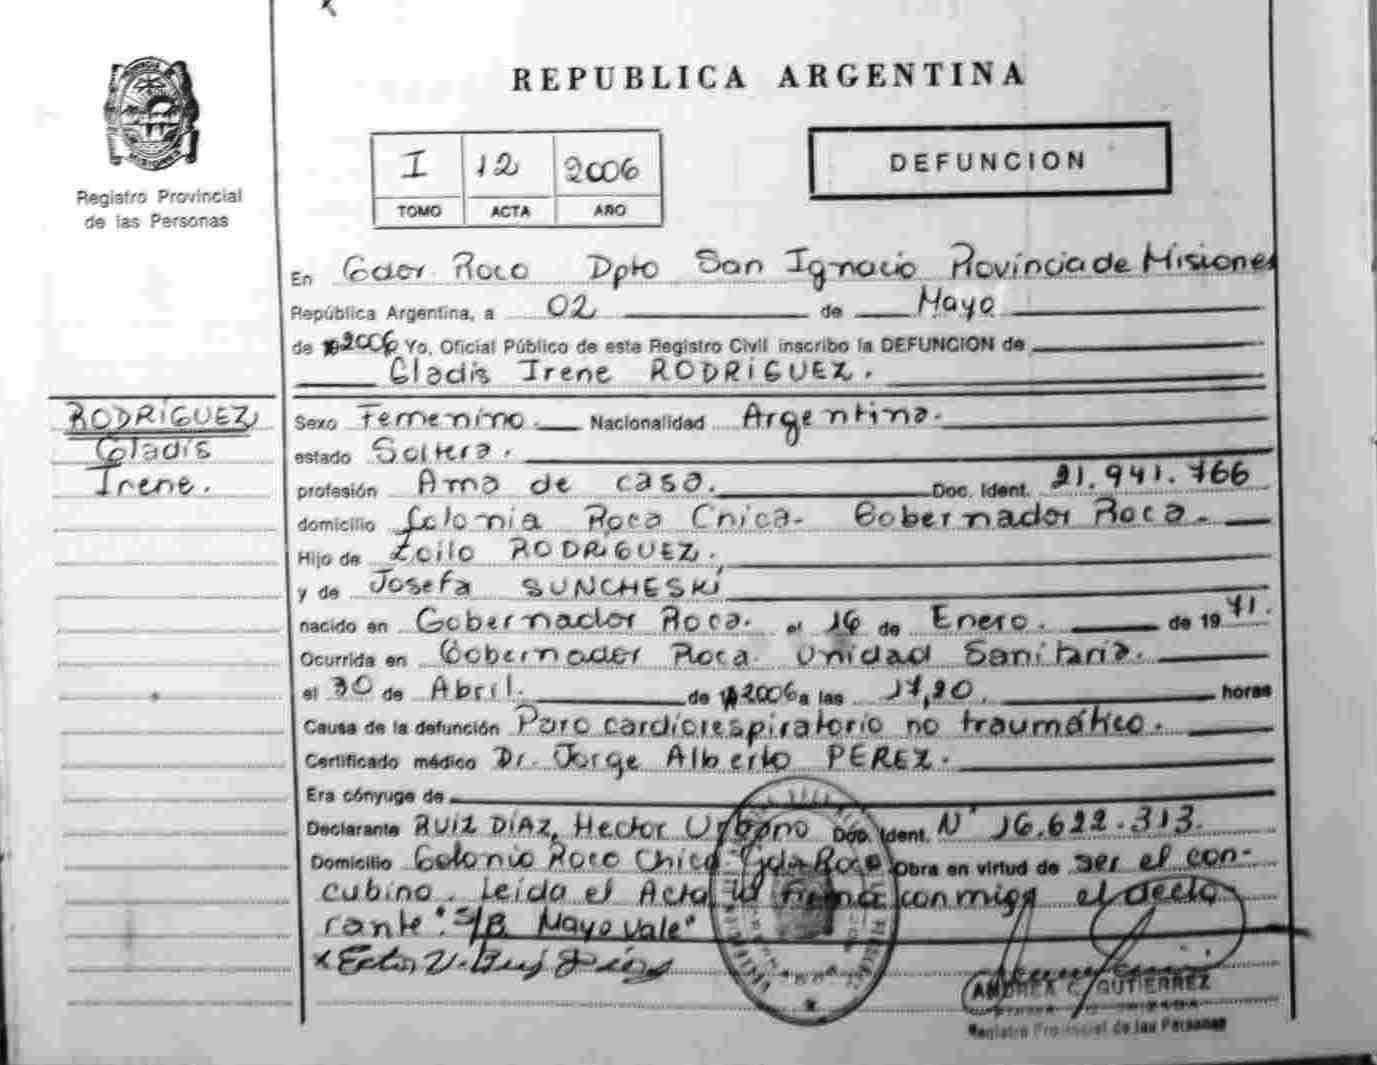 REPUBLICA ARGENTINA
Registro Provincial
de las Personas
I 12 2006
TOMO ACTA AÑO
DEFUNCION
En Gdor. Roca Dpto San Ignacio Provincia de Misiones
República Argentina, a 02 de Mayo
de 2006 Yo, Oficial Público de este Registro Civil inscribo la DEFUNCION de
Gladis Irene RODRÍGUEZ.
RODRÍGUEZ
Gladis
Irene.
Sexo Femenino. Nacionalidad Argentina.
estado Soltera.
profesión Ama de casa. Doc. Ident. 21.941.766
domicilio Colonia Roca Chica. Gobernador Roca.
Hijo de Zoilo RODRÍGUEZ.
y de Josefa SUNCHESKI
nacido en Gobernador Roca. el 16 de Enero. de 1971.
Ocurrida en Gobernador Roca. Unidad Sanitaria.
el 30 de Abril. de 2006 a las 17,20. horas
Causa de la defunción Paro cardiorespiratorio no traumático.
Certificado médico Dr. Jorge Alberto PEREZ.
Era cónyuge de
Declarante RUIZ DÍAZ, Hector Urbano Doc. Ident. Nº 16.622.313.
Domicilio Colonia Roca Chica Gdor Roca Obra en virtud de ser el con-
cubino. Leída el Acta la firma conmigo el decla
rante: "S/B Mayo vale"
ANDREA C. GUTIERREZ
Registro Provincial de las Personas